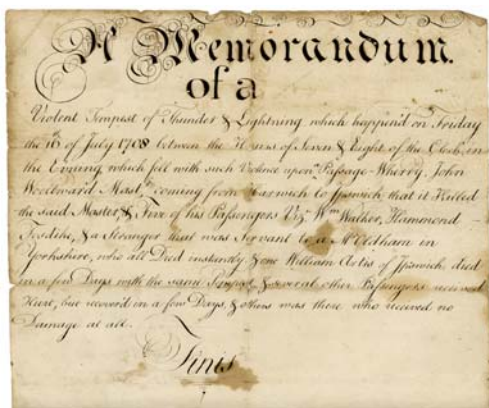 A Memorandum.
of a
Violent Tempest of Thunder & Lightning which happend on Friday
the 16th of July 1708 between the Hours of Seven & Eight of the Clock in
the Evening which fell with such Violence upon a Passage-Wherry. John
Woollward Mastr coming from Harwich to Ipswich that it Killed
the said Master, & Five of his Passengers Vizt Wm Walker, Hammond
& a Stranger that was Servant to a Mr Oldham in
Yorkshire, who all Died instantly & one William Artis of Ipswich died
in a few Days with the same Tempest & several other Passengers received
Hurt, but recoverd in a few Days, & others was there who received no
Damage at all.
Finis